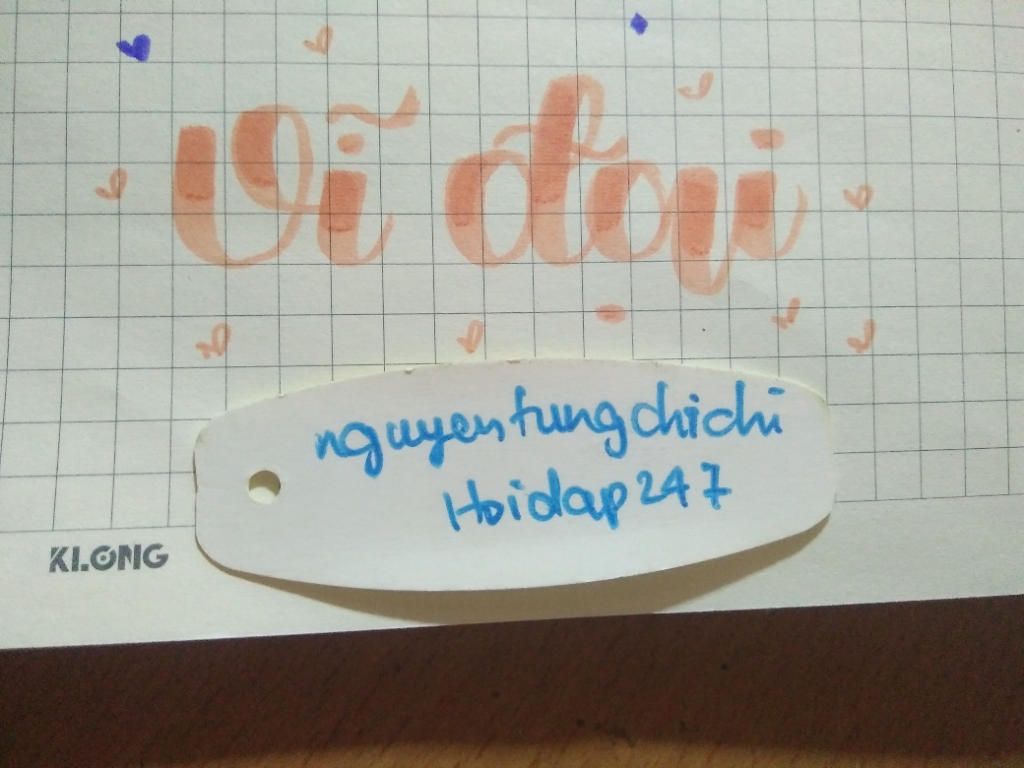 Vĩ đại
nguyentungchichi
Hoidap247
KLONG